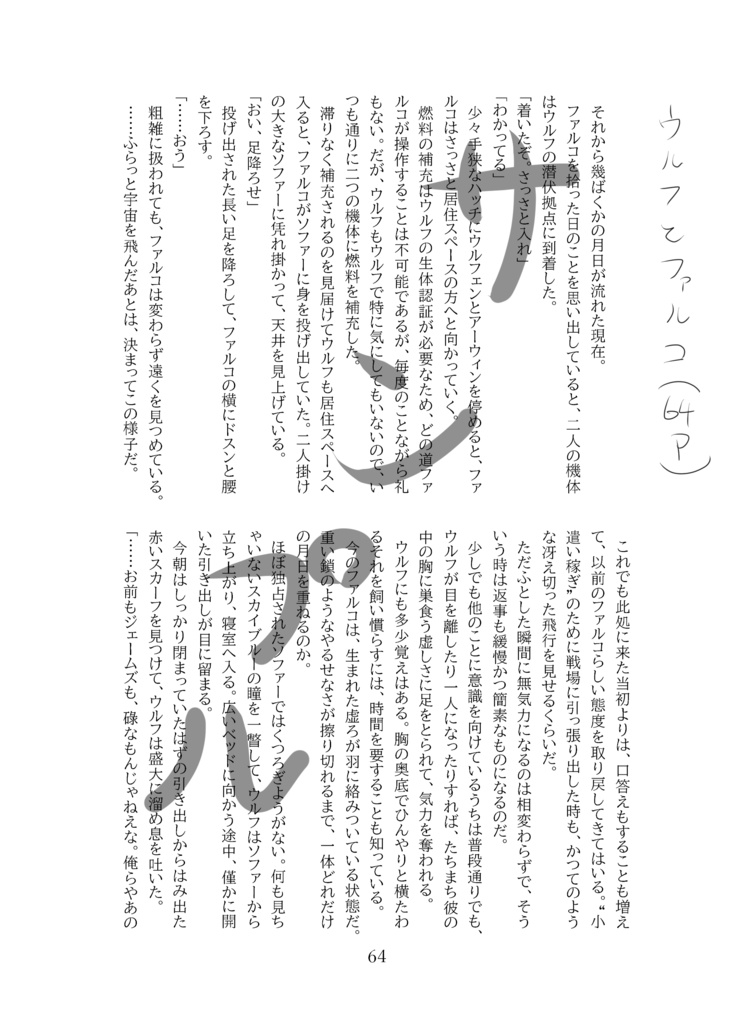 ウルフとファルコ(64P)
それから幾ばくかの月日が流れた現在。
ファルコを拾った日のことを思い出していると、二人の機体
はウルフの潜伏拠点に到着した。
「着いたぞ。さっさと入れ」
「わかってる」
少々手狭なハッチにウルフェンとアーウィンを停めると、ファ
ルコはさっさと居住スペースの方へと向かっていく。
燃料の補充はウルフの生体認証が必要なため、どの道ファ
ルコが操作することは不可能であるが、毎度のことながら礼
もない。だが、ウルフもウルフで特に気にしてもいないので、い
つも通りに二つの機体に燃料を補充した。
滞りなく補充されるのを見届けてウルフも居住スペースへ
入ると、ファルコがソファーに身を投げ出していた。二人掛け
の大きなソファーに凭れ掛かって、天井を見上げている。
「おい、足降ろせ」
投げ出された長い足を降ろして、ファルコの横にドスンと腰
を下ろす。
「……おう」
粗雑に扱われても、ファルコは変わらず遠くを見つめている。
……ふらっと宇宙を飛んだあとは、決まってこの様子だ。
これでも此処に来た当初よりは、口答えもすることも増え
て、以前のファルコらしい態度を取り戻してきてはいる。“小
遣い稼ぎ”のために戦場に引っ張り出した時も、かつてのよう
な冴え切った飛行を見せるくらいだ。
ただふとした瞬間に無気力になるのは相変わらずで、そう
いう時は返事も緩慢かつ簡素なものになるのだ。
少しでも他のことに意識を向けているうちは普段通りでも、
ウルフが目を離したり一人になったりすれば、たちまち彼の
中の胸に巣食う虚しさに足をとられて、気力を奪われる。
ウルフにも多少覚えはある。胸の奥底でひんやりと横たわ
るそれを飼い慣らすには、時間を要することも知っている。
今のファルコは、生まれた虚ろが羽に絡みついている状態だ。
重い鎖のようなやるせなさが擦り切れるまで、一体どれだけ
の月日を重ねるのか。
ほぼ独占されたソファーではくつろぎようがない。何も見ち
ゃいないスカイブルーの瞳を一瞥して、ウルフはソファーから
立ち上がり、寝室へ入る。広いベッドに向かう途中、僅かに開
いた引き出しが目に留まる。
今朝はしっかり閉まっていたはずの引き出しからはみ出た
赤いスカーフを見つけて、ウルフは盛大に溜め息を吐いた。
「……お前もジェームズも、碌なもんじゃねえな。俺らやあの
64
サンプル